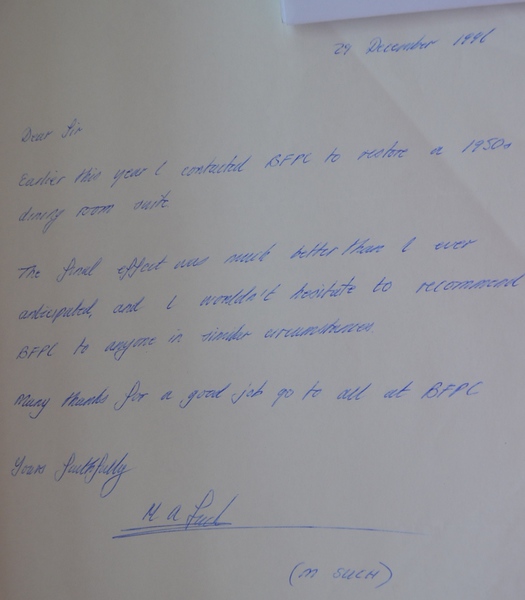 29 December 1996
Dear Sir
Earlier this year I contacted BFPC to restore a 1950s
dining room suite.
The final effect was much better than I ever
anticipated, and I wouldn't hesitate to recommend
BFPC to anyone in similar circumstances.
Many thanks for a good job go to all at BFPC
Yours faithfully
M A Such
(M SUCH)